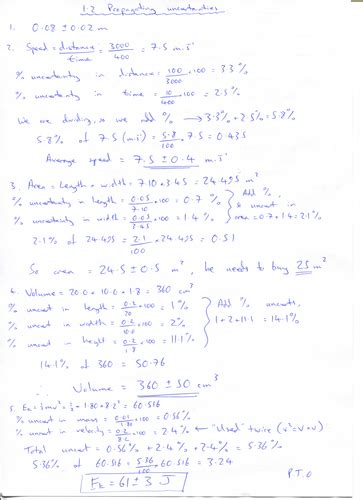 1.2 Propagating uncertainties
1. 0.08 ± 0.02 m
2. Speed = distance/time = 3000/400 = 7.5 m.s⁻¹
% uncertainty in distance = 100/3000 × 100 = 3.3%
% uncertainty in time = 10/400 × 100 = 2.5%
We are dividing, so we add % → 3.3% + 2.5% = 5.8%
5.8% of 7.5 (m.s⁻¹) = 5.8/100 × 7.5 = 0.435
Average speed = 7.5 ± 0.4 m.s⁻¹
3. Area = Length × width = 7.10 × 3.45 = 24.495 m²
% uncertainty in length = 0.05/7.10 × 100 = 0.7 %
% uncertainty in width = 0.05/3.45 × 100 = 1.4 %
} Add %
uncert in
area = 0.7 + 1.4 = 2.1%
2.1% of 24.495 = 2.1/100 × 24.495 = 0.51
So area = 24.5 ± 0.5 m², he needs to buy 25 m²
4. Volume = 20.0 × 10.0 × 1.8 = 360 cm³
% uncert in length = 0.2/20 × 100 = 1%
% uncert in width = 0.2/10.0 × 100 = 2%
% uncert in height = 0.2/1.8 × 100 = 11.1%
} Add % uncerts,
1 + 2 + 11.1 = 14.1%
14.1% of 360 = 50.76
∴ Volume = 360 ± 50 cm³
5. Eₖ = ½mv² = ½ × 1.80 × 8.2² = 60.516
% uncert in mass = 0.01/1.80 × 100 = 0.56%
% uncert in velocity = 0.2/8.2 × 100 = 2.4% ← "Used" twice (v² = v × v)
Total uncert = 0.56% + 2.4% + 2.4% = 5.36%
5.36% of 60.516 = 5.36/100 × 60.516 = 3.24
Eₖ = 61 ± 3 J
P.T.O